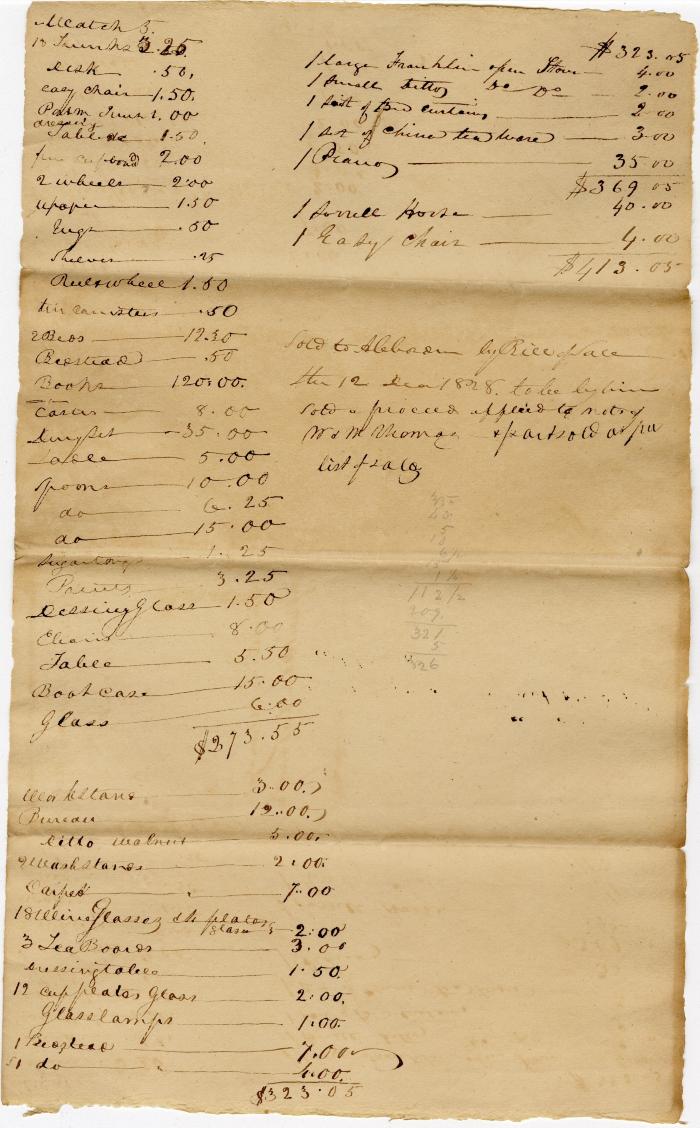 Match 5.
13 Trunks 3.25
Desk .50,
easy chair 1.50.
Trunk 1.00
dressing
Table do 1.50
cupboard 2.00
2 wheels 2.00
1.50
Rugs .50
Shelves .25
Reel & wheel 1.50
tin canisters .50
2 Beds 12.50
Bedstead .50
Books 120.00.
Casters 8.00
35.00
Table 5.00
Spoons 10.00
do 6.25
do 15.00
Sugartongs 1.25
3.25
Dressing Glass 1.50
Chairs 8.00
Table 5.50
Bookcase 15.00
Glass 6.00
$273.55
Workstand 3.00.
Bureau 12.00.
Ditto walnut 5.00.
2 Washstands 2.00.
Carpet 7.00
18 Wine Glasses & plates
glass 2.00
3 Tea Boards 3.00
Dressing table 1.50
12 cup plates Glass 2.00.
Glass lamps 1.00.
1 Bedstead 7.00
1 do 4.00.
$323.05
$323.05
1 large Franklin open Stove 4.00
1 small ditto Do Do 2.00
1 set of Bed curtains 2.00
1 set of China tea ware 3.00
1 Piano 35.00
$369.05
1 Sorrell Horse 40.00
1 Easy Chair 4.00
$413.05
Sold to by Bill of Sale
the 12 1828. to be by him
Sold & proceeds applied to
W & M Thomas & part sold as per
list of sale
5
112½
209
321
5
326